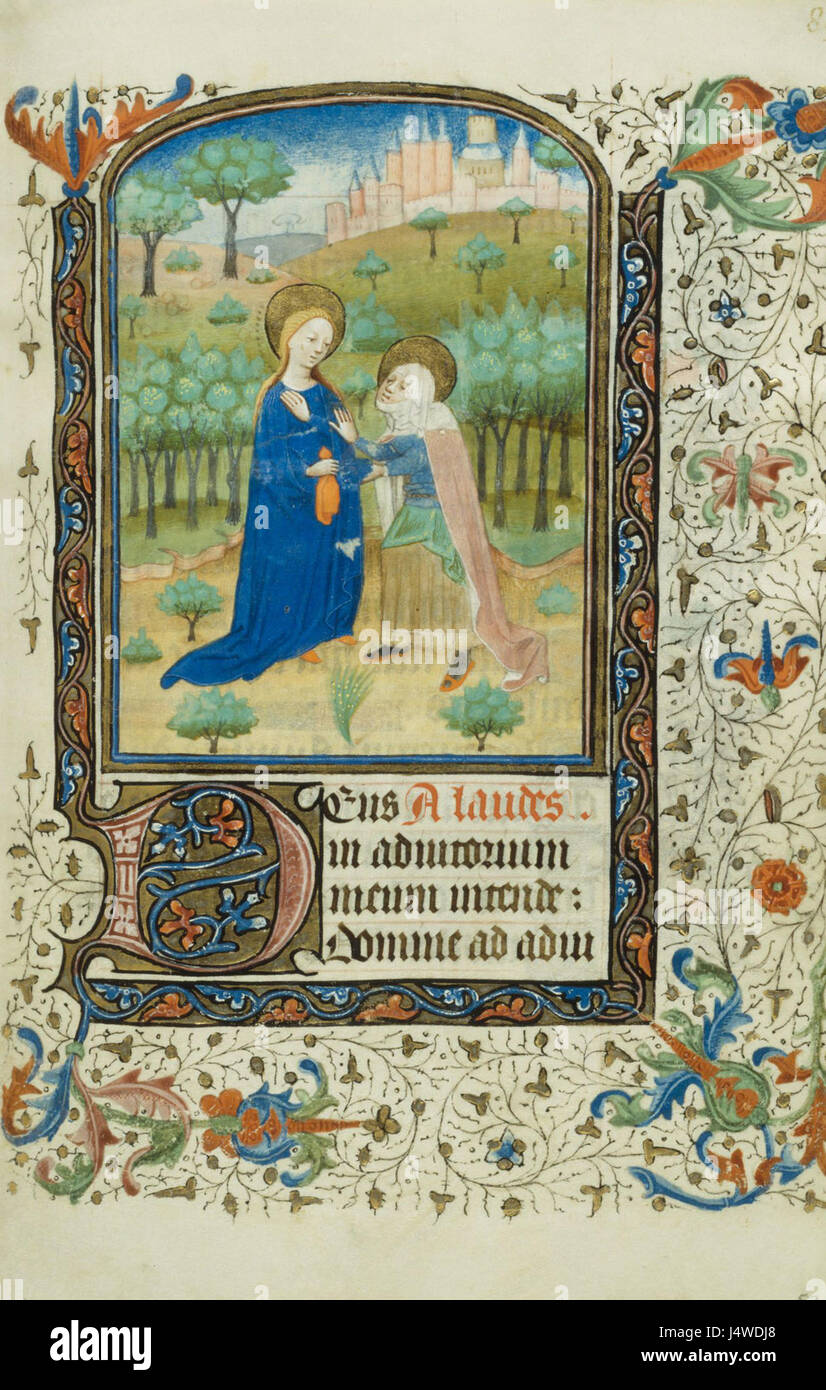 8
Deus A laudes.
in adiutorium
meum intende:
Domine ad adiu
alamy
Image ID: J4WDJ8
www.alamy.com